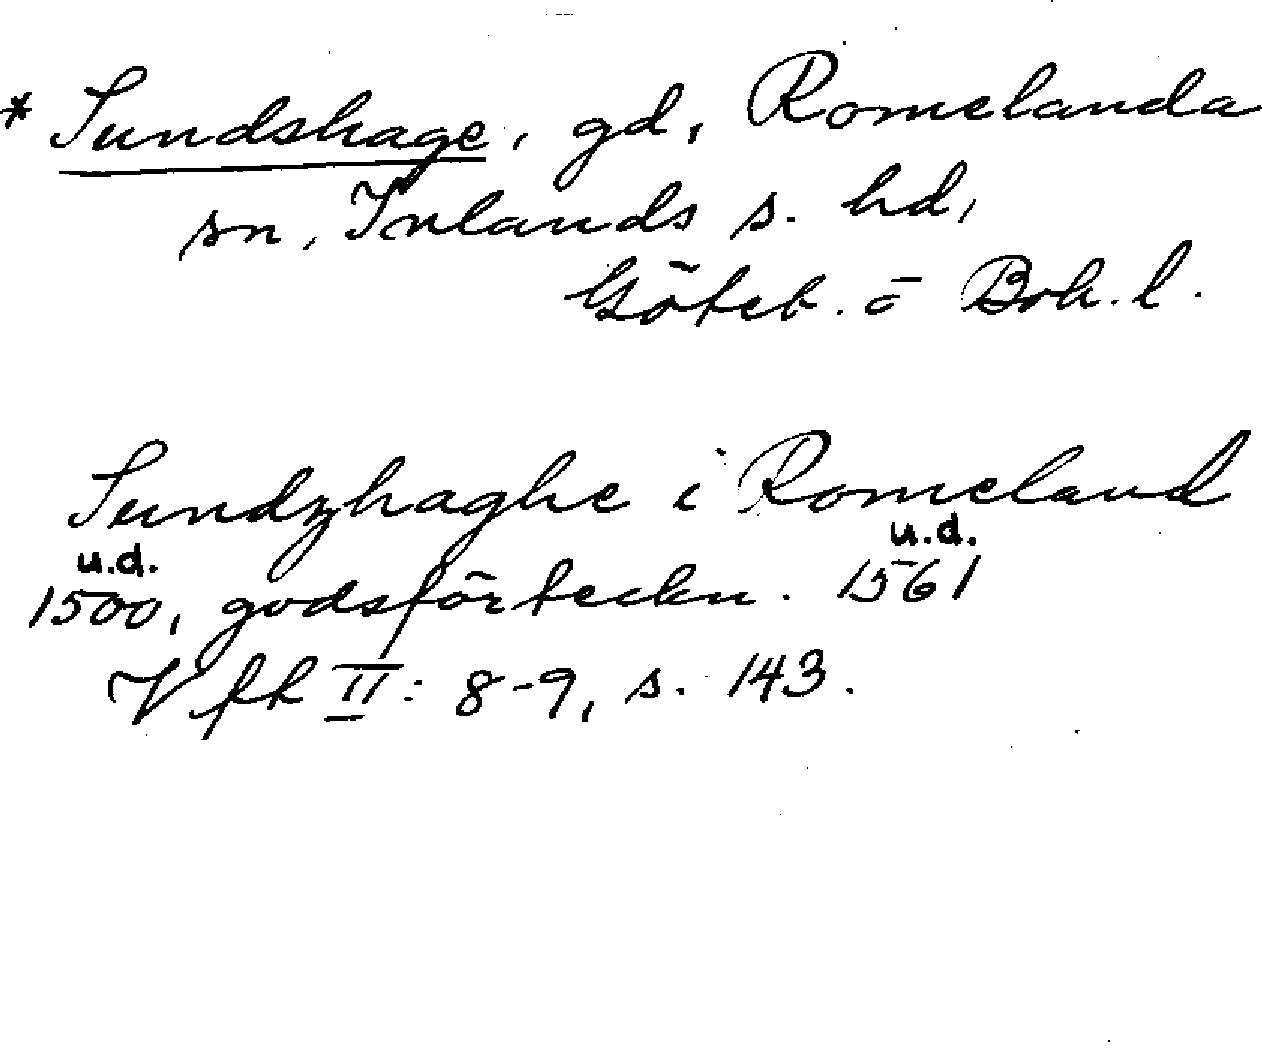 * Sundshage, gd, Romelanda
sn, Inlands s. hd,
Göteb. o Boh. l.
Sundzhaghe i Romeland
u.d. u.d.
1500, godsförteckn. 1561
Vfh II: 8-9, s. 143.